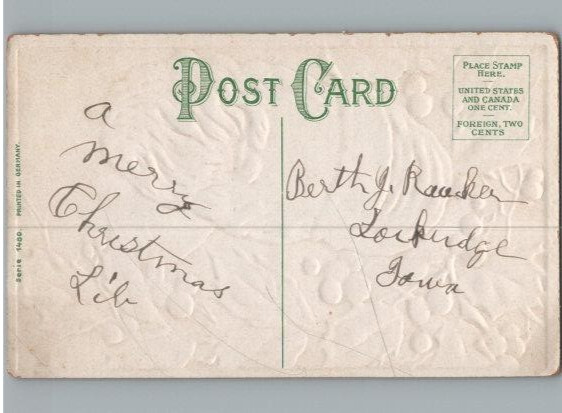 POST CARD
PLACE STAMP
HERE.
UNITED STATES
AND CANADA
ONE CENT.
FOREIGN, TWO
CENTS
a
merry
Christmas
Lib
Berth J.
Lockridge
Iowa
Serie 1480. PRINTED IN GERMANY.